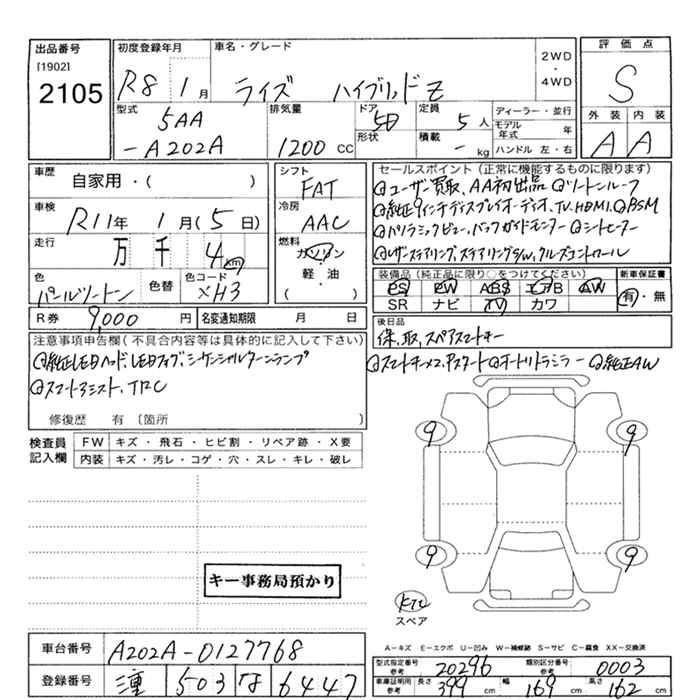 出品番号
[1902]
2105
初度登録年月
R8 1月
車名・グレード
ライズ ハイブリッドZ
2WD
・
4WD
評価点
S
外装 内装
A A
型式
5AA
-A202A
排気量
1200 CC
ドア
5D
形状
定員
5人
積載
- kg
ディーラー・並行
モデル年式 年
ハンドル 左・右
車歴
自家用・( )
車検
R11年1月(5日)
走行
万 千 4 km
色
パールツートン
色替
色コード
XH3
シフト
FAT
冷房
AAC
燃料
ガソリン
・
軽・油
( )
R券 9,000 円
名変通知期限 月 日
セールスポイント(正常に機能するものに限ります)
◎ユーザー買取、AA初出品 ◎ツートンルーフ
◎純正9インチディスプレイオーディオ、TV、HDMI、◎BSM
◎パノラミックビュー、バックガイドモニター ◎シートヒーター
◎レザーステアリング、ステアリングS/W、クルーズコントロール
装備品(純正品に限り○をつけてください)
PS PW ABS エアB AW
SR ナビ TV カワ
新車保証書
有・無
後日品
保、取、スペアスマートキー
◎スマートキー×2、Pスタート ◎オートリトラミラー ◎純正AW
注意事項申告欄(不具合内容等は具体的に記入して下さい)
◎純正LEDヘッド、LEDフォグ、シーケンシャルターンランプ
◎スマートアシスト、TRC
修復歴 有 〔箇所 〕
検査員
記入欄
FW キズ・飛石・ヒビ割・リペア跡・X要
内装 キズ・汚レ・コゲ・穴・スレ・キレ・破レ
9 9
9 9
キー事務局預かり
スペア
A-キズ E-エクボ U-凹み W-補修跡 S-サビ C-腐食 XX-交換済
車台番号 A202A-0127768
登録番号 503 な 6447
型式指定番号
参考
20296
類別区分番号
参考
0003
車庫証明用
参考
長さ 399 cm 幅 169 cm 高さ 162 cm